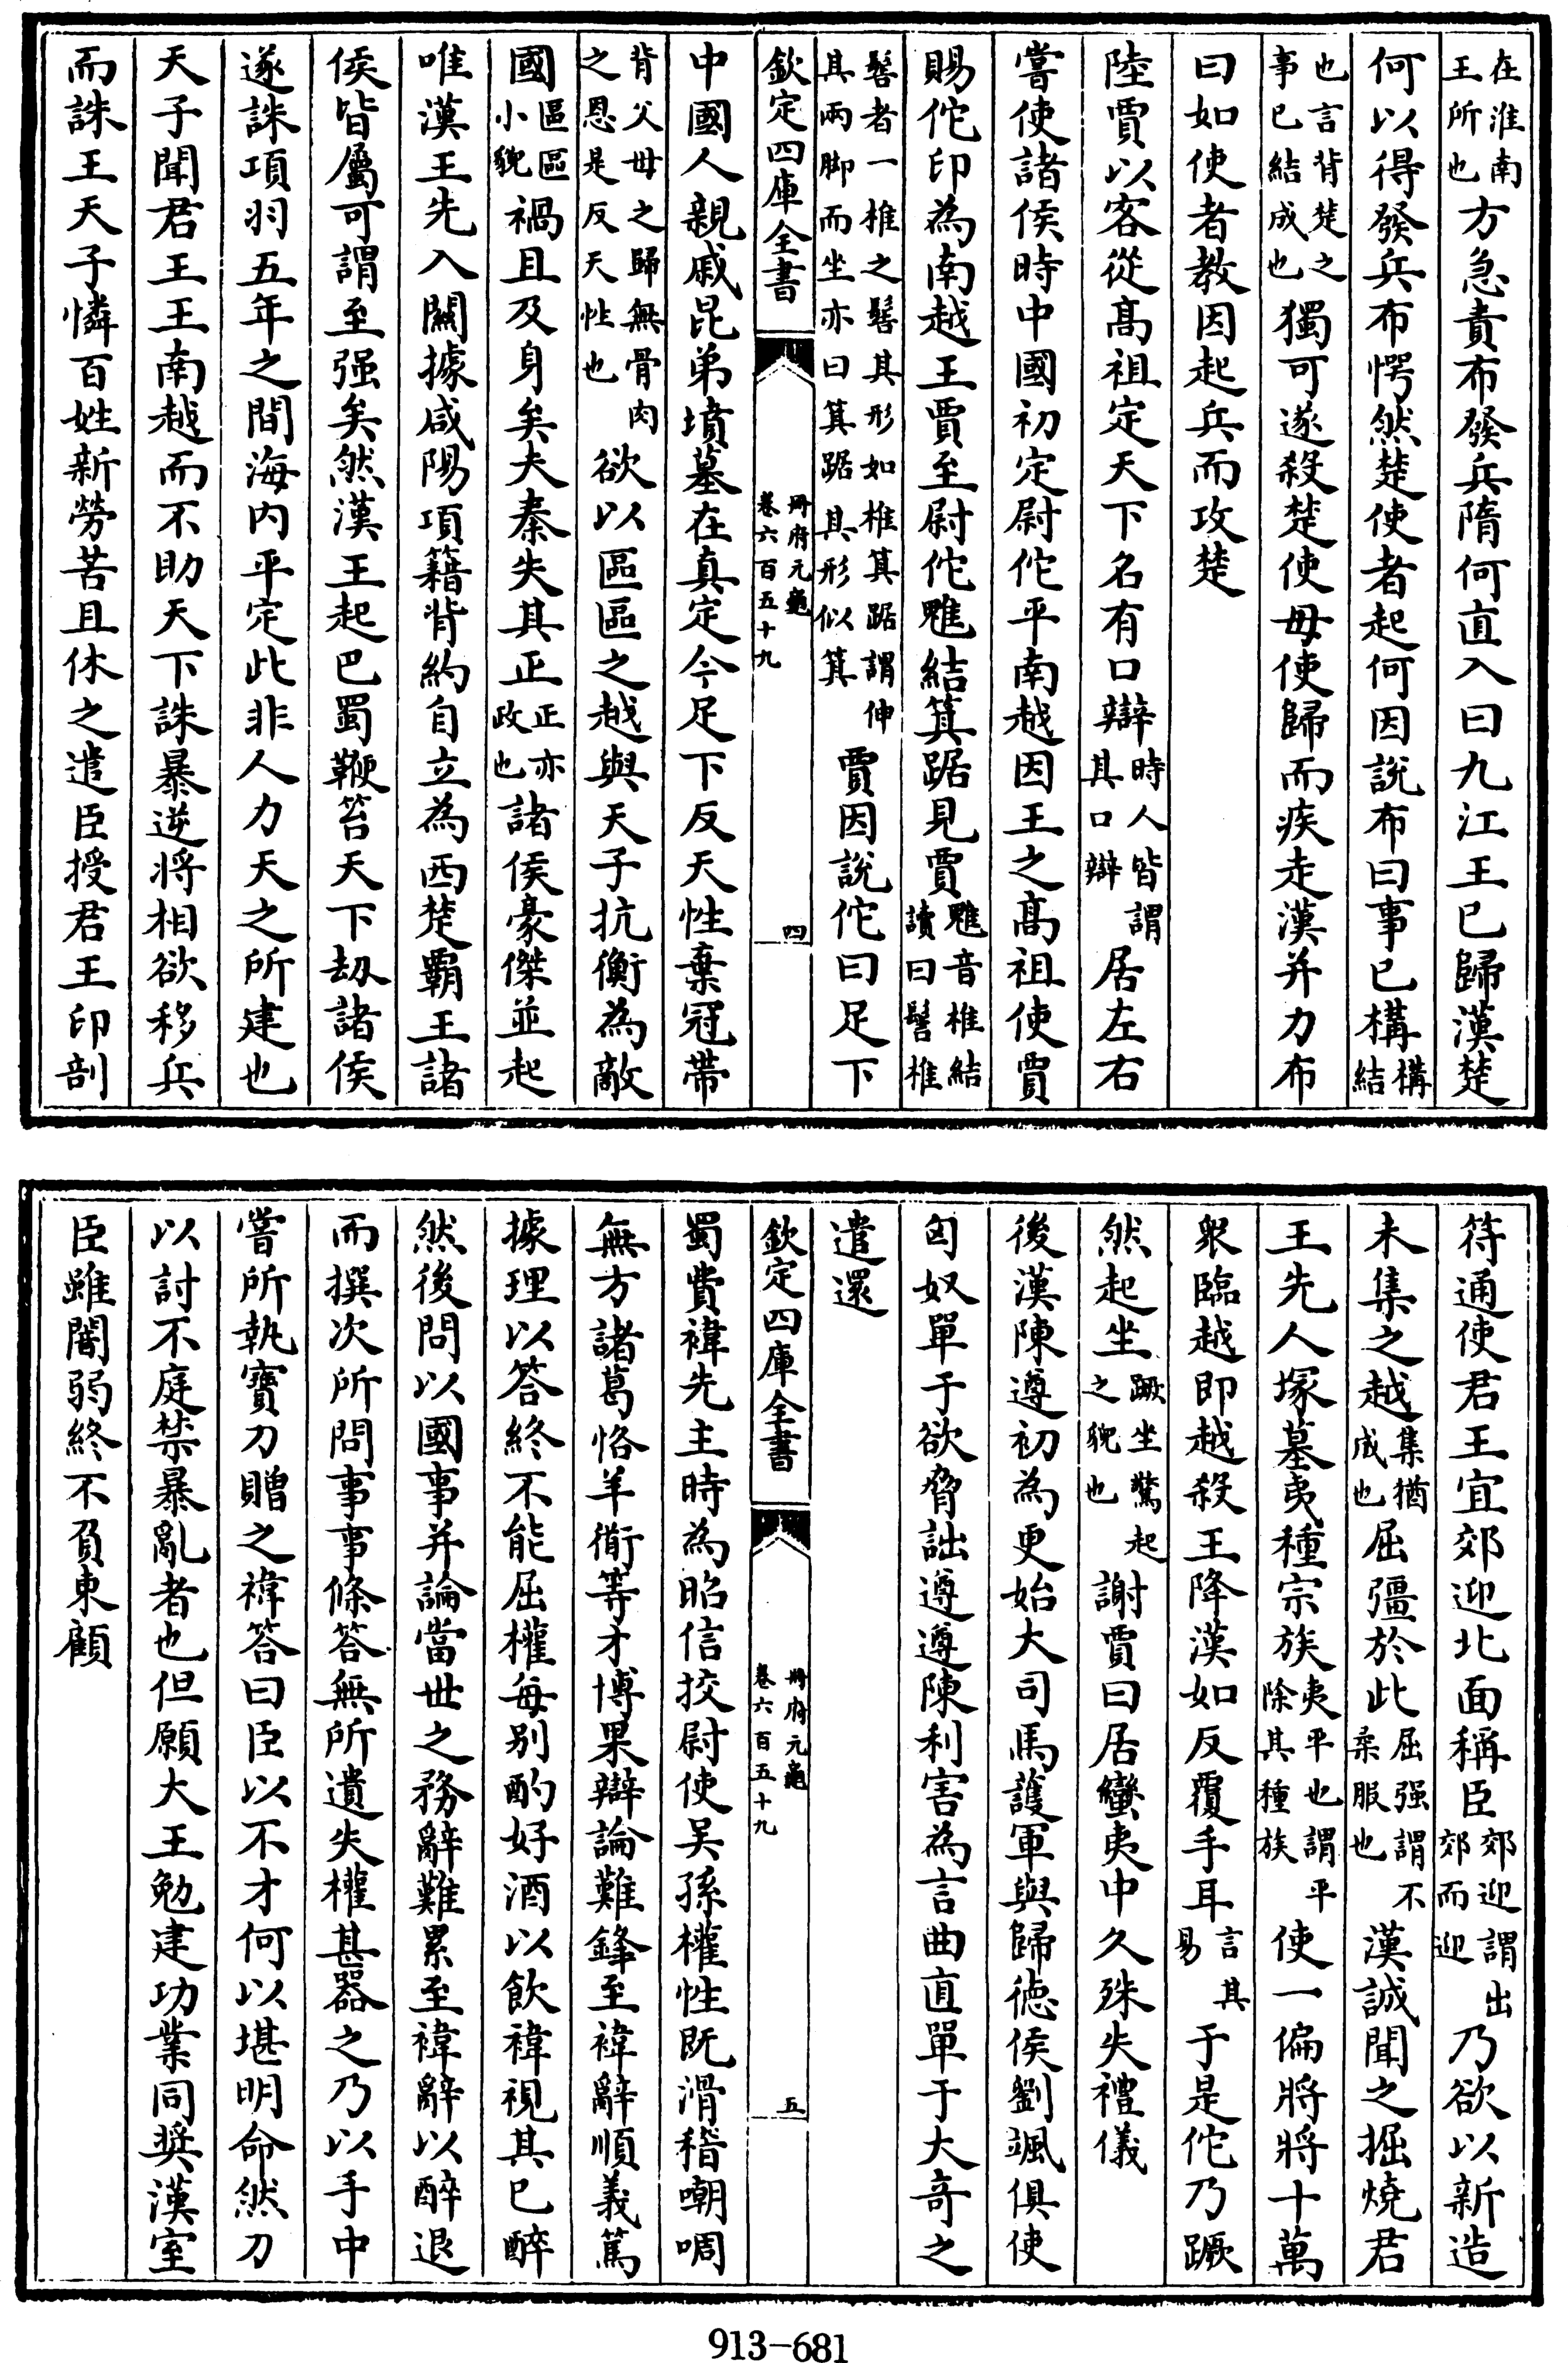 在淮南王所也方急責布發兵隋何直入曰九江王已歸漢楚
何以得發兵布愕然楚使者起何因說布曰事已構構結
也言背楚之事已結成也獨可遂殺楚使毋使歸而疾走漢并力布
曰如使者教因起兵而攻楚
陸賈以客從髙祖定天下名有口辯時人皆謂其口辯居左右
嘗使諸侯時中國初定尉佗平南越因王之髙祖使賈
賜佗印為南越王賈至尉佗魋結箕踞見賈魋音椎結讀曰髻椎
髻者一椎之髻其形如椎箕踞謂伸其兩脚而坐亦曰箕踞其形似箕賈因說佗曰足下
欽定四庫全書 冊府元龜 卷六百五十九 四
中國人親戚昆弟墳墓在真定今足下反天性棄冠帶
背父母之歸無骨肉之恩是反天性也欲以區區之越與天子抗衡為敵
國區區小貌禍且及身矣夫秦失其正正亦政也諸侯豪傑並起
唯漢王先入關據咸陽項籍背約自立為西楚霸王諸
侯皆屬可謂至强矣然漢王起巴蜀鞭笞天下刼諸侯
遂誅項羽五年之間海内平定此非人力天之所建也
天子聞君王王南越而不助天下誅暴逆將相欲移兵
而誅王天子憐百姓新勞苦且休之遣臣授君王印剖
符通使君王宜郊迎北面稱臣郊迎謂出郊而迎乃欲以新造
未集之越集猶成也屈彊於此屈强謂不柔服也漢誠聞之掘燒君
王先人塚墓夷種宗族夷平也謂平除其種族使一偏將將十萬
衆臨越即越殺王降漢如反覆手耳言其易于是佗乃蹶
然起坐蹶坐驚起之貌也謝賈曰居蠻夷中久殊失禮儀
後漢陳遵初為更始大司馬護軍與歸徳侯劉颯俱使
匈奴單于欲脅詘遵遵陳利害為言曲直單于大奇之
遣還
欽定四庫全書 冊府元龜 卷六百五十九 五
蜀費褘先主時為昭信挍尉使吳孫權性既滑稽嘲啁
無方諸葛恪羊衜等才博果辯論難鋒至褘辭順義篤
據理以答終不能屈權毎别酌好酒以飲褘視其已醉
然後問以國事并論當世之務辭難累至褘辭以醉退
而撰次所問事事條答無所遺失權甚器之乃以手中
嘗所執寳刀贈之褘答曰臣以不才何以堪明命然刀
以討不庭禁暴亂者也但願大王勉建功業同奬漢室
臣雖闇弱終不負東顧
913-681